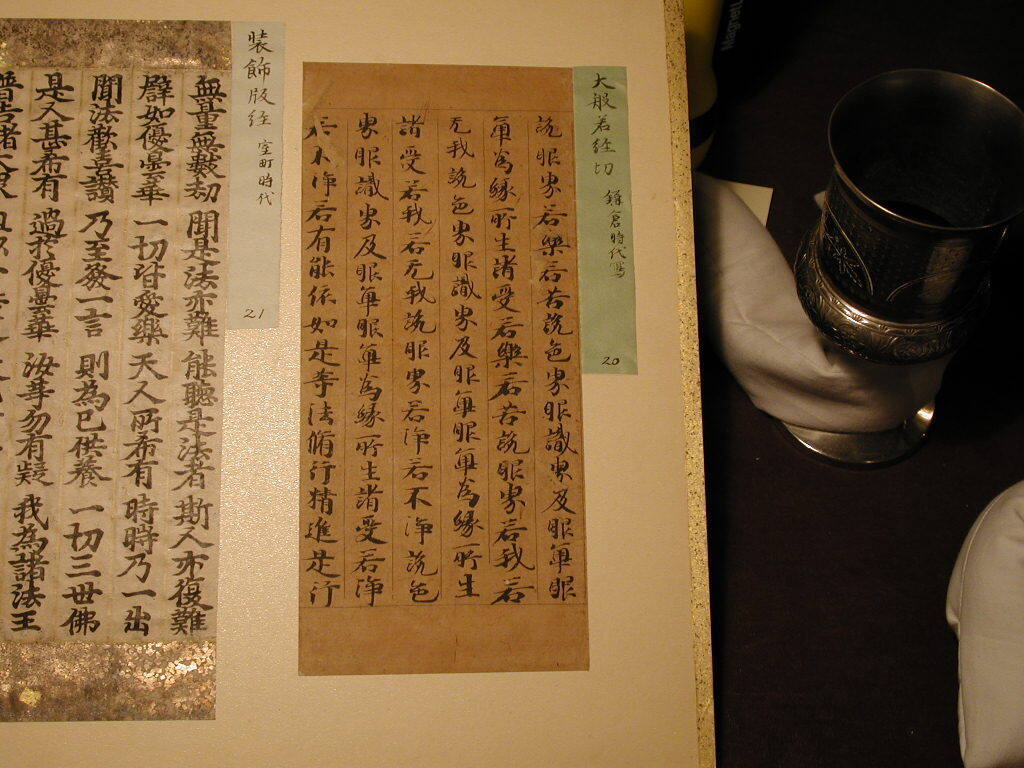 MagnetL
大般若経切 鎌倉時代写
20
說眼界若樂若苦說色界眼識界及眼觸眼
觸為緣所生諸受若樂若苦說眼界若我若
无我說色界眼識界及眼觸眼觸為緣所生
諸受若我若无我說眼界若淨若不淨說色
界眼識界及眼觸眼觸為緣所生諸受若淨
若不淨若有能依如是等法脩行精進是行
装飾版経 室町時代
21
無量無數劫 聞是法亦難 能聽是法者 斯人亦復難
譬如優曇華 一切皆愛樂 天人所希有 時時乃一出
聞法歡喜讚 乃至發一言 則為已供養 一切三世佛
是人甚希有 過於優曇華 汝等勿有疑 我為諸法王
普告諸大衆